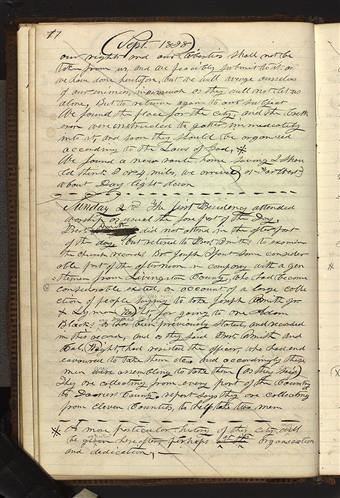 77
(Sept. 1838)
our rights and our liberties shall not be
taken from us, and we peacibly submit to it as
we have done heretofore, but we will avenge ourselves
of our enimies, inasmuch as they will not let us
alone, But to return again to our subject
We found the place for the city, and the breth
ren were instructed to gather immediately
into it, and soon they should be organized
according to the Laws of God, *
We found a new route home Saving I shou
ld think 3 or 4 miles, we arrived at Far West
about Day light down
Sunday 2nd The first Presidency attended
worship as usual the fore part of the Day
Prest Smith did not attend in the after part
of the day, but retired to Prest to examine
the church records, Prest Joseph Spent Some consider
able part of the afternoon in company with a gen
tleman from Livingston County, who had become
considerable excited, on account of a large colle
ction of people, Saying to take Joseph Smith Jr
& Lyman Wight, for going to one Adam
Black's, as has been previously stated, and recorded
in this record, and as they Said, Prest Smith and
Col. Wight had resisted the officer, who had end
eavoured to take them etc, And accordingly these
men were assembling to take them (as they Said)
They are collecting from every part of the Country
to Daviess County, report Says they are collecting
from eleven Counties, to help take two men
* A more particular history of this City will
be given hereafter, perhaps at its Organization
and dedication,